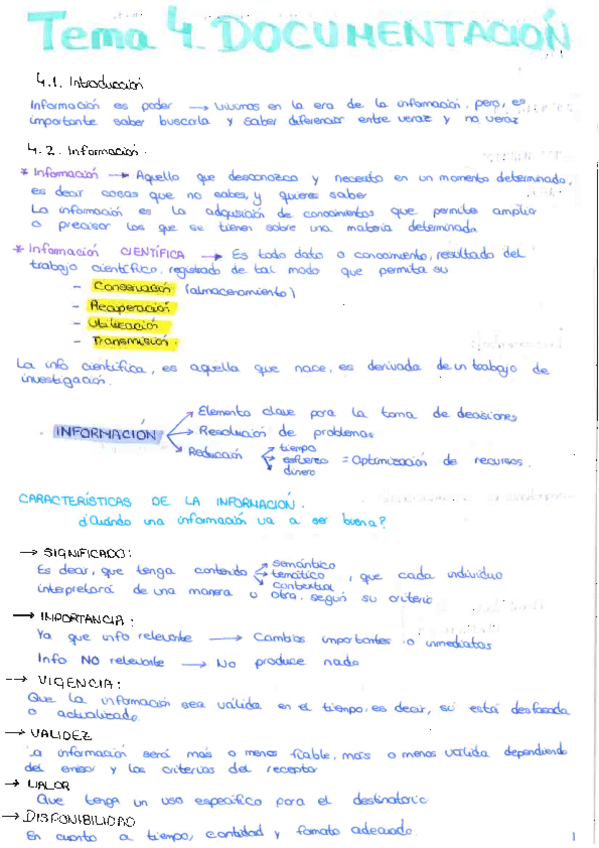 Tema 4. DOCUMENTACIÓN
4.1. Introducción
Información es poder → vivimos en la era de la información, pero, es
importante saber buscarla y saber diferenciar entre veraz y no veraz
4.2. Información.
* Información → Aquello que desconozco y necesito en un momento determinado,
es decir cosas que no sabes, y quieres saber
La información es la adquisición de conocimientos que permite ampliar
o precisar los que se tienen sobre una materia determinada
* Información CIENTÍFICA → Es todo dato o conocimiento, resultado del
trabajo científico, registrado de tal modo que permita su
- Conservación (almacenamiento)
- Recuperación
- Utilización
- Transmisión.
La info científica, es aquella que nace, es derivada de un trabajo de
investigación.
INFORMACIÓN
Elemento clave para la toma de decisiones
Resolución de problemas
Reducción
tiempo
esfuerzo = Optimización de recursos.
dinero
CARACTERÍSTICAS DE LA INFORMACIÓN.
¿Cuándo una información va a ser buena?
→ SIGNIFICADO:
Es decir, que tenga contenido semántico
temático, que cada individuo
contextual
interpretará de una manera u otra, según su criterio
→ IMPORTANCIA:
Ya que info relevante → Cambios importantes o inmediatos
Info NO relevante → No produce nada
→ VIGENCIA:
Que la información sea válida en el tiempo, es decir, si está desfasada
o actualizada.
→ VALIDEZ
La información será más o menos fiable, más o menos válida dependiendo
del emisor y los criterios del receptor
→ VALOR
Que tenga un uso específico para el destinatario
→ DISPONIBILIDAD
En cuanto a tiempo, cantidad y formato adecuado.
1